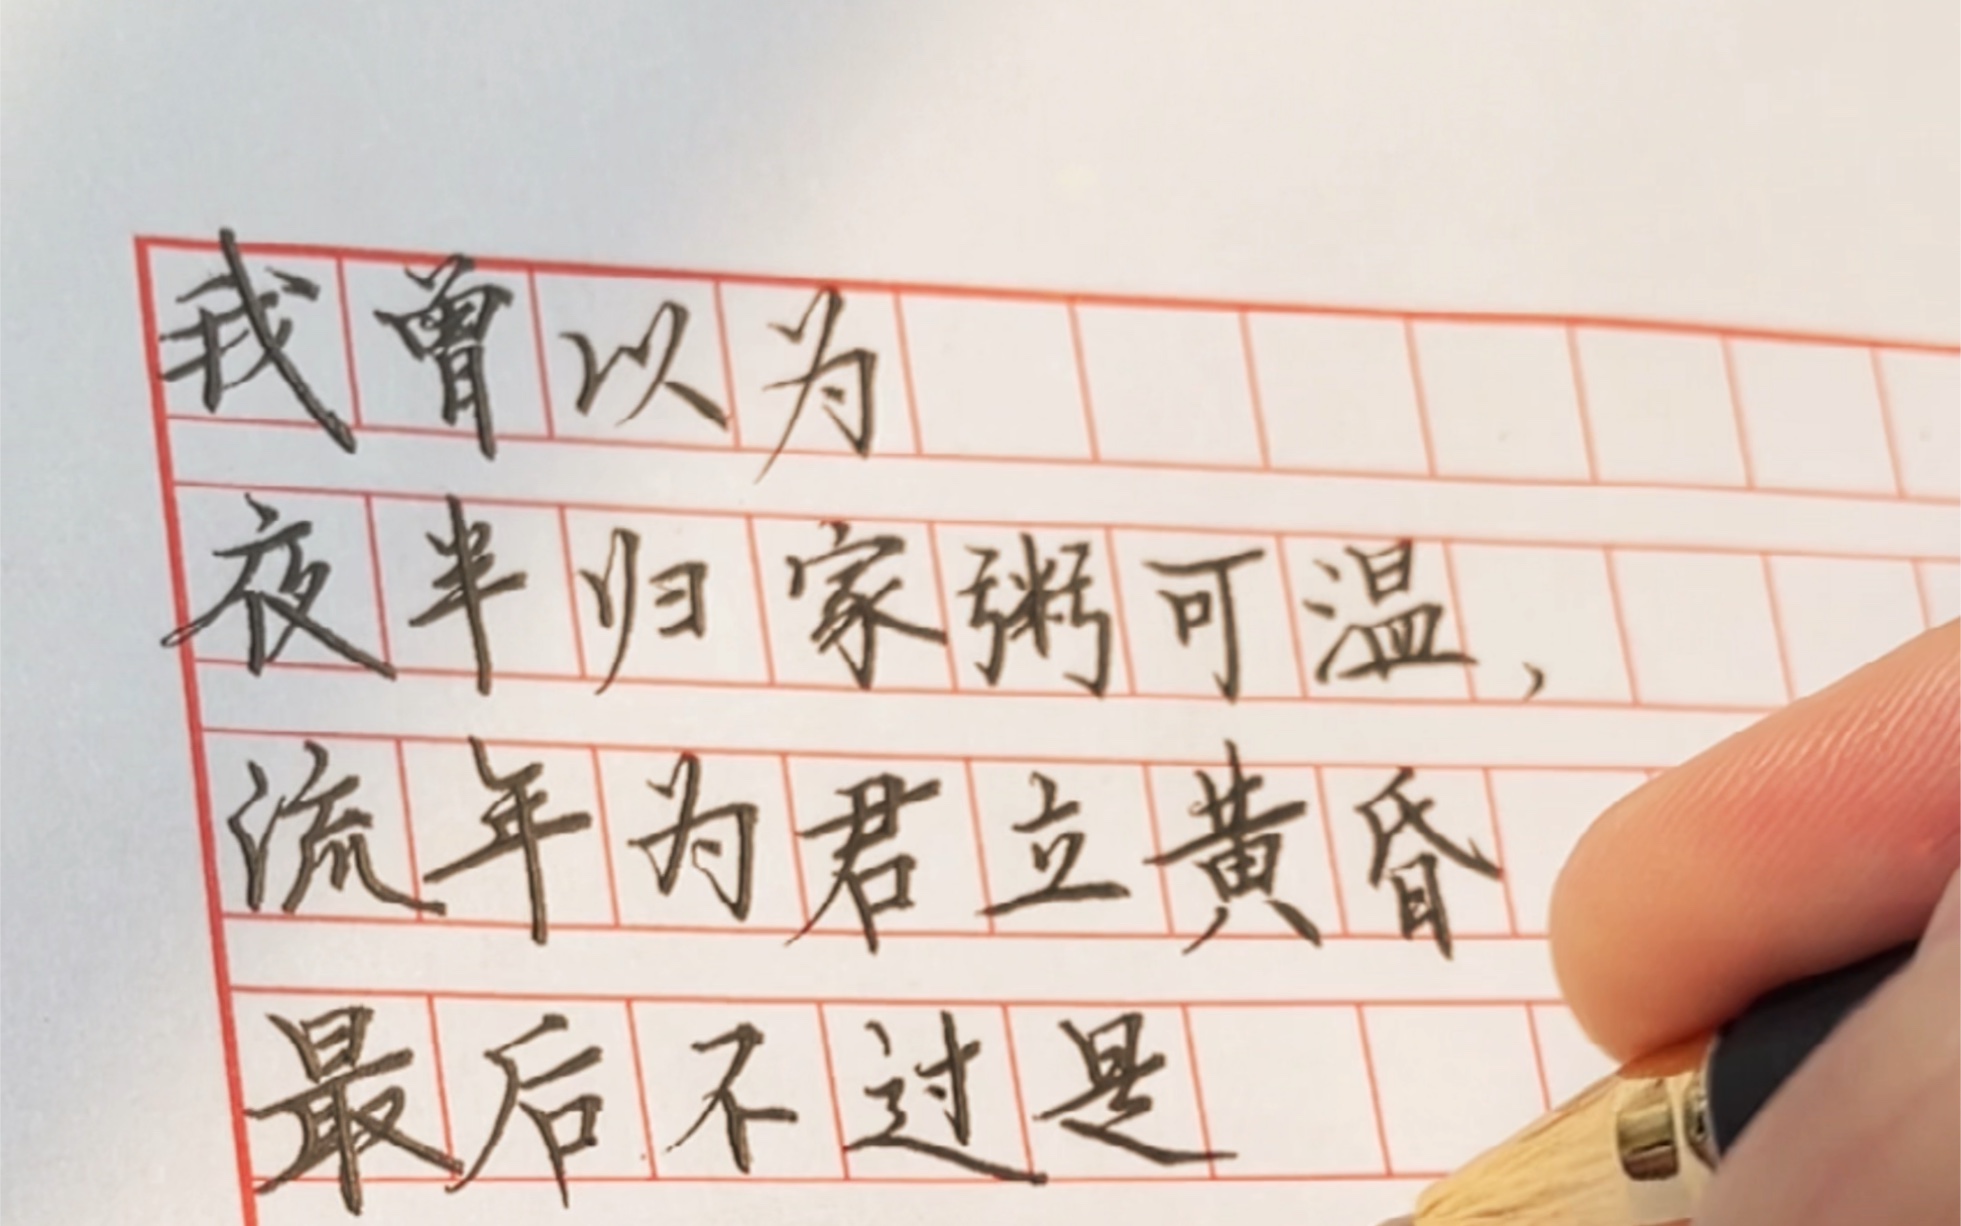 我曾以为
夜半归家粥可温，
流年为君立黄昏
最后不过是